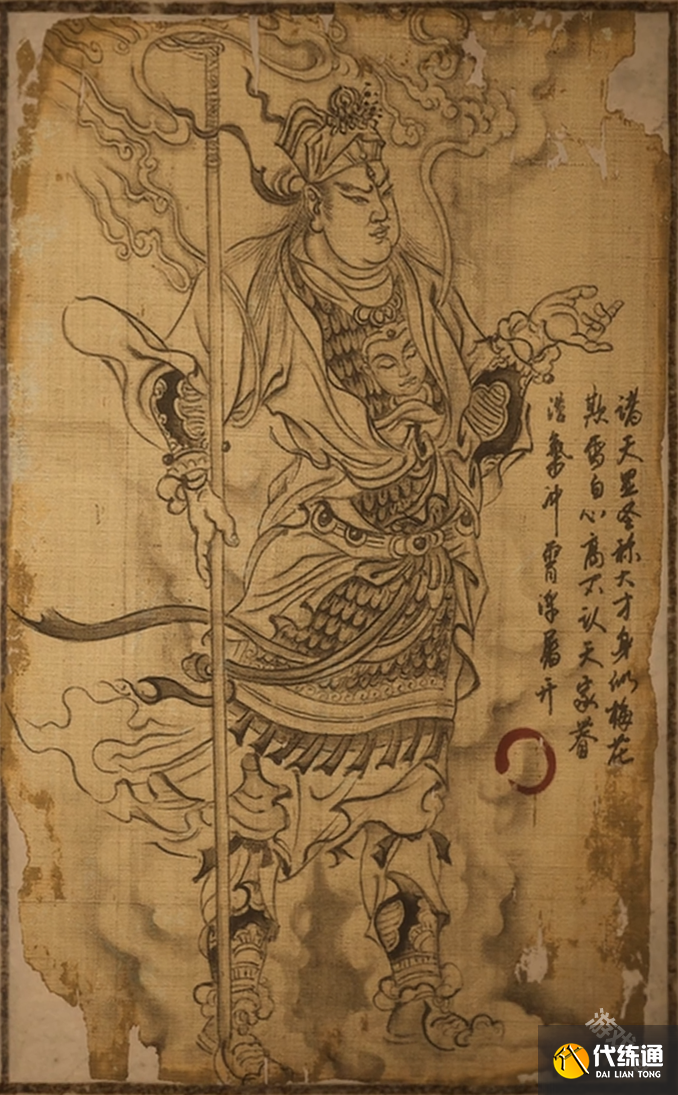 诸天显圣称大才身似梅花
欺雪白心高不认天家眷
浩氣冲霄浮屠开
代练通
DAI LIAN TONG